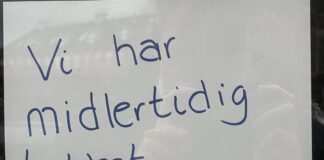 Vi har
midlertidig